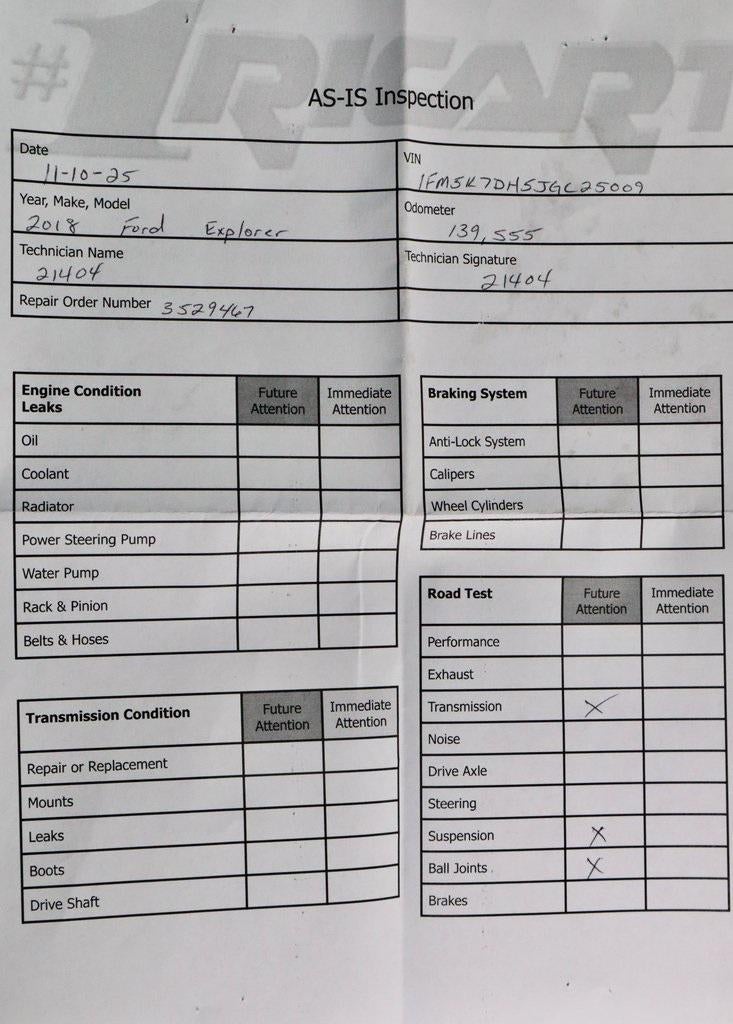 #1 RICART
AS-IS Inspection
Date
11-10-25
VIN
1FM5K7DH5JGC25009
Year, Make, Model
2018 Ford Explorer
Odometer
139,555
Technician Name
21404
Technician Signature
21404
Repair Order Number 3529467
Engine Condition Leaks Future Attention Immediate Attention
Oil
Coolant
Radiator
Power Steering Pump
Water Pump
Rack & Pinion
Belts & Hoses
Braking System Future Attention Immediate Attention
Anti-Lock System
Calipers
Wheel Cylinders
Brake Lines
Transmission Condition Future Attention Immediate Attention
Repair or Replacement
Mounts
Leaks
Boots
Drive Shaft
Road Test Future Attention Immediate Attention
Performance
Exhaust
Transmission X
Noise
Drive Axle
Steering
Suspension X
Ball Joints X
Brakes